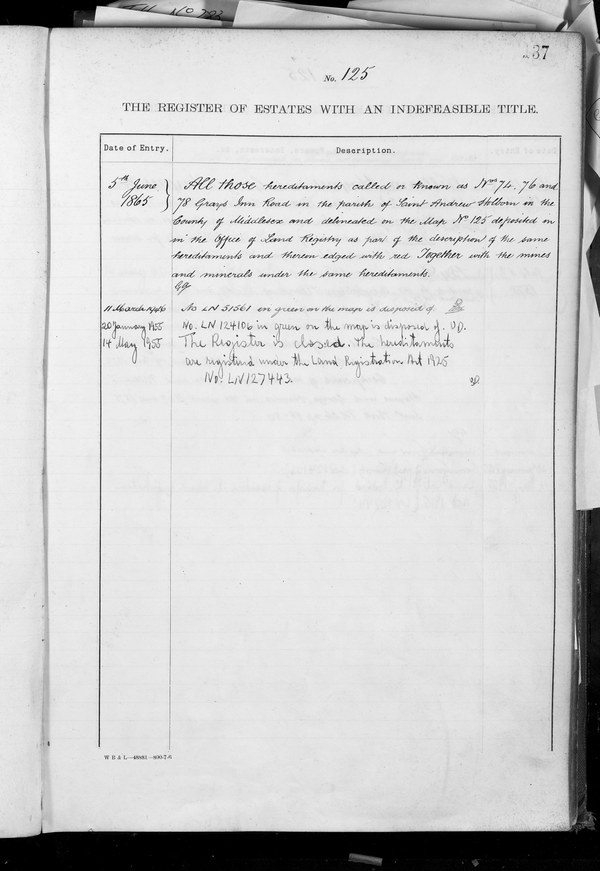 237
No. 125
THE REGISTER OF ESTATES WITH AN INDEFEASIBLE TITLE.
Date of Entry. Description.
5th June 1865 All those hereditaments called or known as Nos 74, 76 and
78 Grays Inn Road in the parish of Saint Andrew Holborn in the
County of Middlesex and delineated on the Map No 125 deposited on
in the Office of Land Registry as part of the description of the same
hereditaments and therein edged with red Together with the mines
and minerals under the same hereditaments.
11 March 1946 As LN 51561 in green on the map is disposed of.
20 January 1955 No. LN 124106 in green on the map is disposed of.
14 May 1955 The Register is closed. The hereditaments
are registered under the Land Registration Act 1925
No. LN127443.